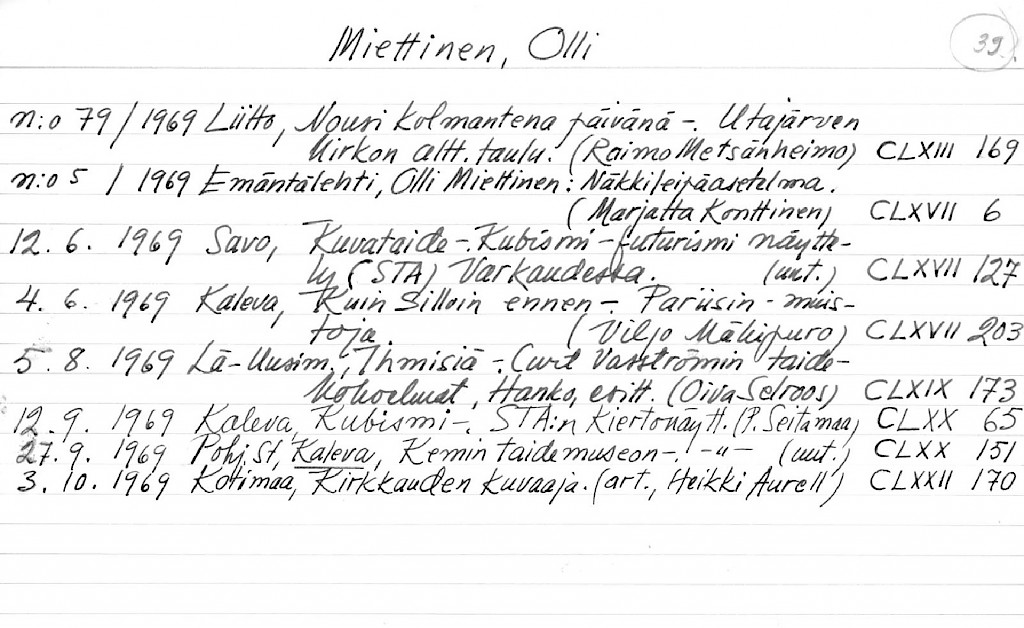 Miettinen, Olli
39.
n:o 79/1969 Liitto, Nousi kolmantena päivänä -. Utajärven
kirkon altt. taulu. (Raimo Metsänheimo) CLXIII 169
n:o 5 / 1969 Emäntälehti, Olli Miettinen: Näkkileipäasetelma.
(Marjatta Konttinen) CLXVII 6
12.6. 1969 Savo, Kuvataide -. Kubismi - futurismi näytte-
ly (STA) Varkaudessa. (uut.) CLXVII 127
4. 6. 1969 Kaleva, Kuin silloin ennen -. Pariisin - muis-
toja. (Viljo Mäkipuro) CLXVII 203
5. 8. 1969 Lä-Uusim., Ihmisiä -. Curt Vasströmin taide-
kokoelmat, Hanko, esitt. (Oiva Selroos) CLXIX 173
12.9. 1969 Kaleva, Kubismi -. STA:n kiertonäytt. (P. Seitamaa) CLXX 65
27.9. 1969 Pohj. St, Kaleva, Kemin taidemuseon -. -"- (uut.) CLXX 151
3. 10. 1969 Kotimaa, Kirkkauden kuvaaja. (art., Heikki Aurell) CLXXII 170